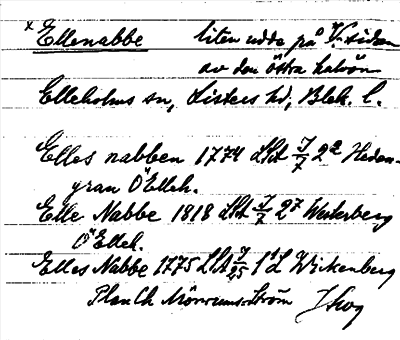 x Ellenabbe liten udde på V. sidan
av den östra halvön
Elleholms sn, Listers hd, Blek. l.
Elles nabben 1774 LSA J/7 2² Heden-
gran ÖElleh.
Elle Nabbe 1818 LSA J/7 2⁷ Westerberg
ÖElleh.
Elles Nabbe 1775 LSA J/25 1¹ L Wickenberg
Plan Ch Mörrums Ström